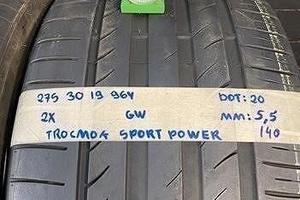 275 30 19 96Y DOT: 20
2X GW MM: 5,5
TROCMOK SPORT POWER 140